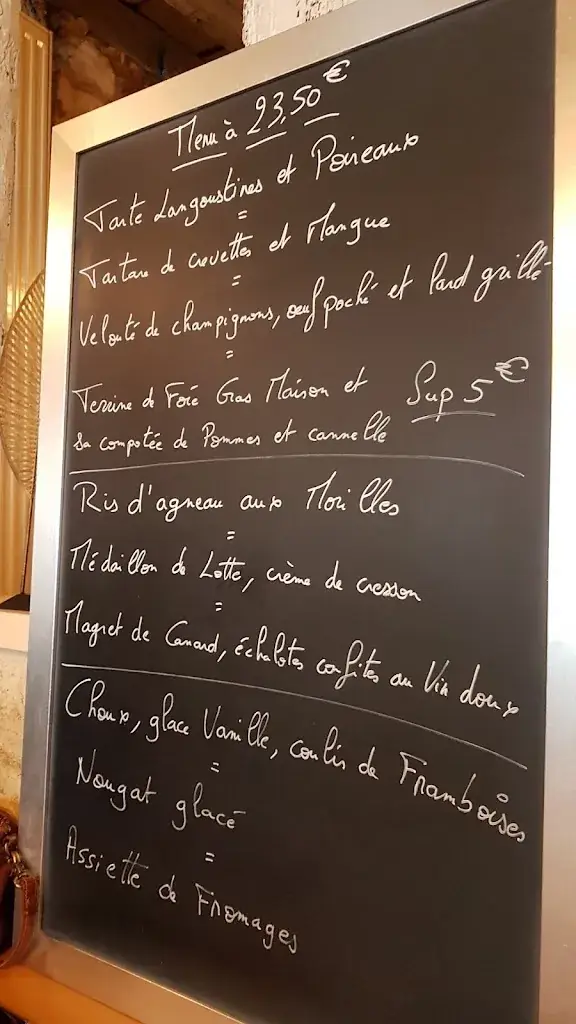 Menu à 23,50€
Tarte Langoustines et Poireaux
=
Tartare de crevettes et Mangue
=
Velouté de champignons, oeuf poché et lard grillé
=
Terrine de Foie Gras Maison et Sup 5€
sa compotée de Pommes et cannelle
Ris d'agneau aux Morilles
=
Médaillon de Lotte, crème de cresson
=
Magret de Canard, échalotes confites au Vin doux
Choux, glace Vanille, coulis de Framboises
=
Nougat glacé
=
Assiette de Fromages